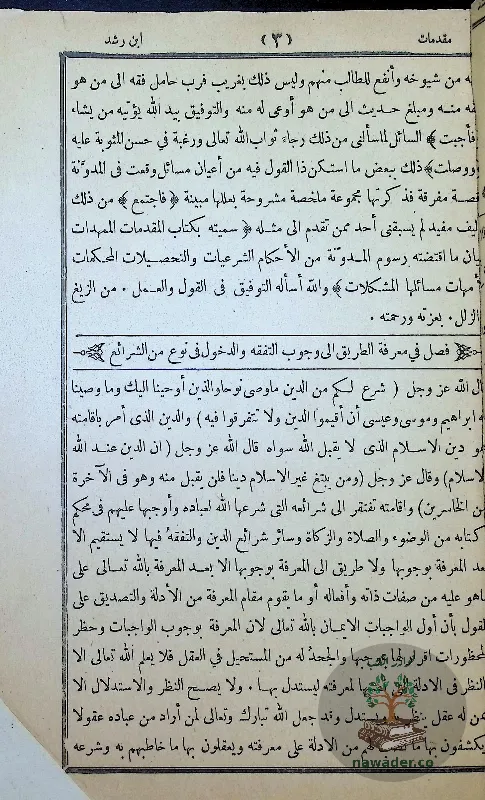 مقدمات (٣) ابن رشد
من شيوخه وأنفع للطالب منهم وليس ذلك بغريب فرب حامل فقه الى من هو
منه ومبلغ حديث الى من هو أوعى له منه والتوفيق بيد الله يؤتيه من يشاء
فأجبت﴾ السائل لما سألنى من ذلك رجاء ثواب الله تعالى ورغبة في حسن المثوبة عليه
ووصلت﴾ ذلك ببعض ما استكن ذا القول فيه من أعيان مسائل وقعت فى المدونة
مفرقة فذكرتها مجموعة ملخصة مشروحة بعللها مبينة ﴿فاجتمع﴾ من ذلك
مفيد لم يسبقنى أحد ممن تقدم الى مثله ﴿سميته بكتاب المقدمات الممهدات
ما اقتضته رسوم المدونة من الأحكام الشرعيات والتحصيلات المحكمات
مسائلها المشكلات﴾ والله أسأله التوفيق فى القول والعمل . من الزيغ
بعزته ورحمته .
﴿ فصل في معرفة الطريق الى وجوب التفقه والدخول فى نوع من الشرائع ﴾
الله عز وجل ( شرع لكم من الدين ما وصى نوحا والذين أوحينا اليك وما وصينا
ابراهيم وموسى وعيسى أن أقيموا الدين ولا تتفرقوا فيه ) والدين الذى أمر باقامته
دين الاسلام الذى لا يقبل الله سواه قال الله عز وجل ( ان الدين عند الله
الاسلام) وقال عز وجل (ومن يبتغ غير الاسلام دينا فلن يقبل منه وهو فى الآخرة
من الخاسرين) واقامته تفتقر الى شرائعه التى شرعها الله لعباده وأوجبها عليهم فى محكم
كتابه من الوضوء والصلاة والزكاة وسائر شرائع الدين والتفقه فيها لا يستقيم الا
بعد المعرفة بوجوبها ولا طريق الى المعرفة بوجوبها الا بعد المعرفة بالله تعالى على
ما هو عليه من صفات ذاته وأفعاله أو ما يقوم مقام المعرفة من الأدلة والتصديق على
القول بأن أول الواجبات الايمان بالله تعالى لان المعرفة بوجوب الواجبات وحظر
المحظورات والجحد له من المستحيل فى العقل فلا يعلم الله تعالى الا
النظر فى الادلة لمعرفته ليستدل بها . ولا يصح النظر والاستدلال الا
ممن له عقل وقد جعل الله تبارك وتعالى لمن أراد من عباده عقولا
يكشفون بها من الادلة على معرفته ويعقلون بها ما خاطبهم به وشرعه
nawader.co